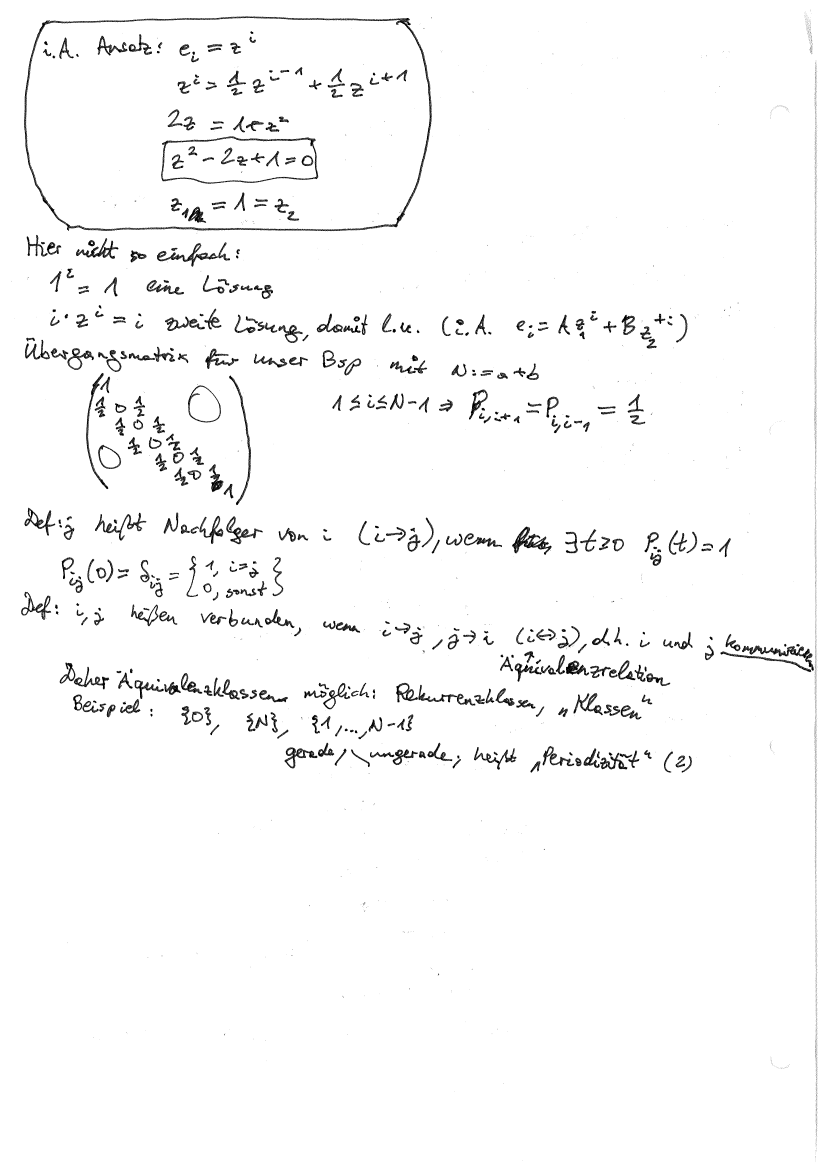 i.A. Ansatz: e_i = z^i
z^i = 1/2 z^{i-1} + 1/2 z^{i+1}
2z = 1 + z²
z² - 2z + 1 = 0
z_1 = 1 = z_2
Hier nicht so einfach:
1^i = 1 eine Lösung
i · z^i = i zweite Lösung, damit l.u. (i.A. e_i = A z_1^i + B z_2^{+i})
Übergangsmatrix für unser Bsp mit N := a + b
1 ≤ i ≤ N-1 ⇒ P_{i,i+1} = P_{i,i-1} = 1/2
1
1/2 0 1/2
1/2 0 1/2
1/2 0 1/2
0 1/2 0 1/2
1/2 0 1/2
1
Def: j heißt Nachfolger von i (i→j), wenn ∃ t≥0 P_{ij}(t) = 1
P_{ij}(0) = δ_{ij} = { 1, i=j
0, sonst }
Def: i, j heißen verbunden, wenn i→j, j→i (i↔j), d.h. i und j
↑
Äquivalenzrelation
Daher Äquivalenzklassen möglich: Rekurrenzklassen, „Klassen“
Beispiel: {0}, {N}, {1,...,N-1}
gerade, ungerade; heißt „Periodizität“ (2)